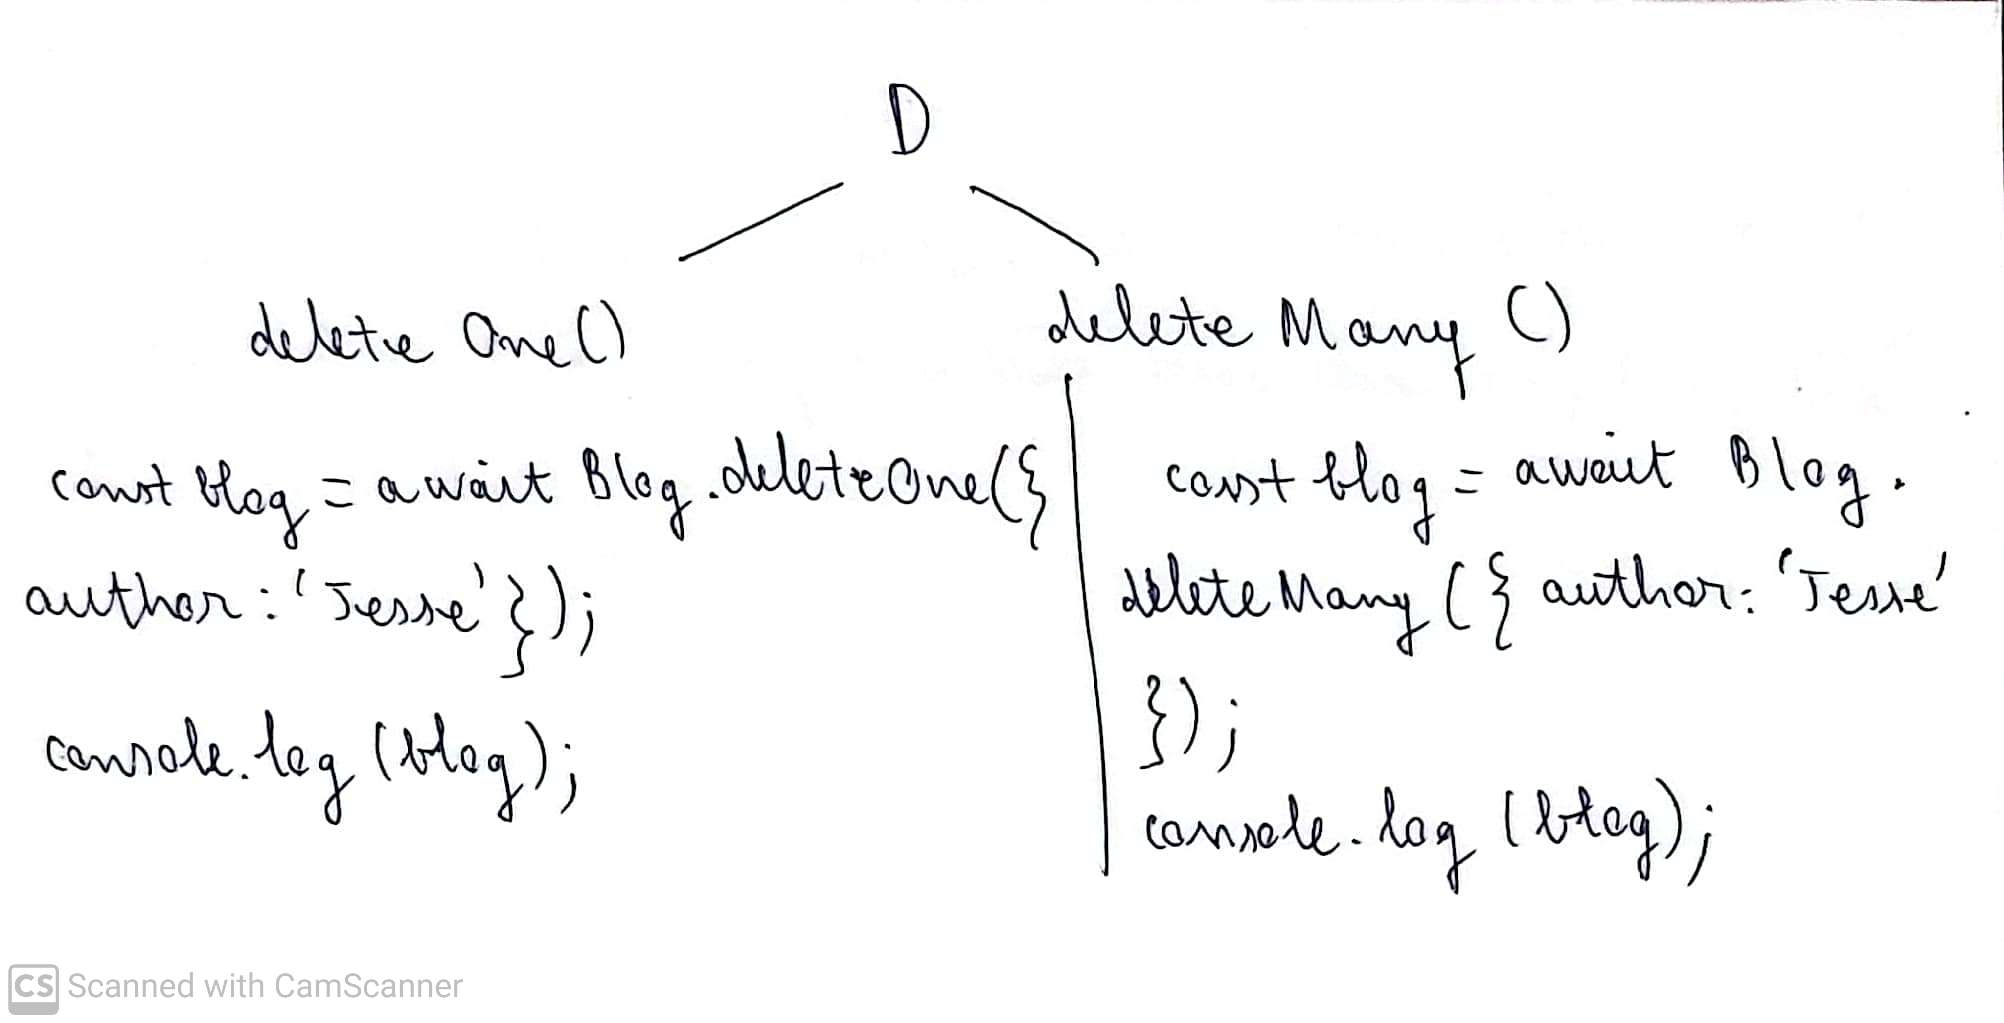 D
delete One()
delete Many ()
const blog = await Blog.deleteOne({
author: 'Jesse'});
console.log (blog);
const blog = await Blog.
deleteMany ({ author: 'Jesse'
});
console.log (blog);
CS Scanned with CamScanner